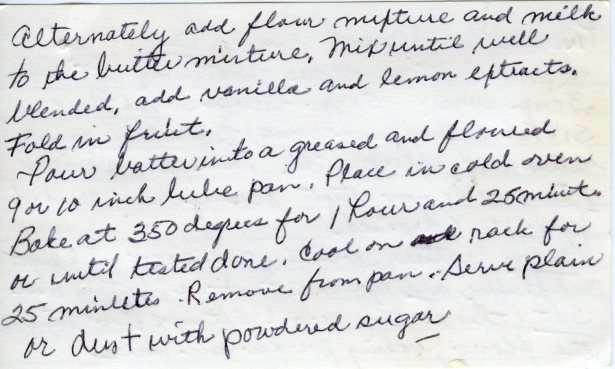 Alternately add flour mixture and milk
to the butter mixture. Mix until well
blended. Add vanilla and lemon extracts.
Fold in fruit.
Pour batter into a greased and floured
9 or 10 inch tube pan. Place in cold oven
Bake at 350 degrees for 1 hour and 25 minutes
or until tested done. Cool on rack for
25 minutes. Remove from pan. Serve plain
or dust with powdered sugar